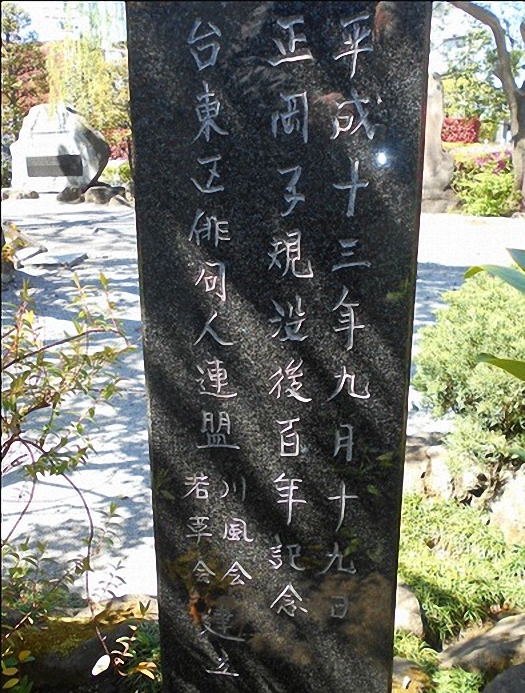 平成十三年九月十九日
正岡子規没後百年記念
台東区俳句人連盟 川風会 若草会 建立